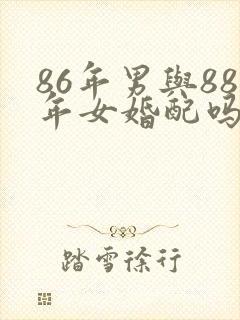 86年男與88
年女婚配吗
踏雪徐行